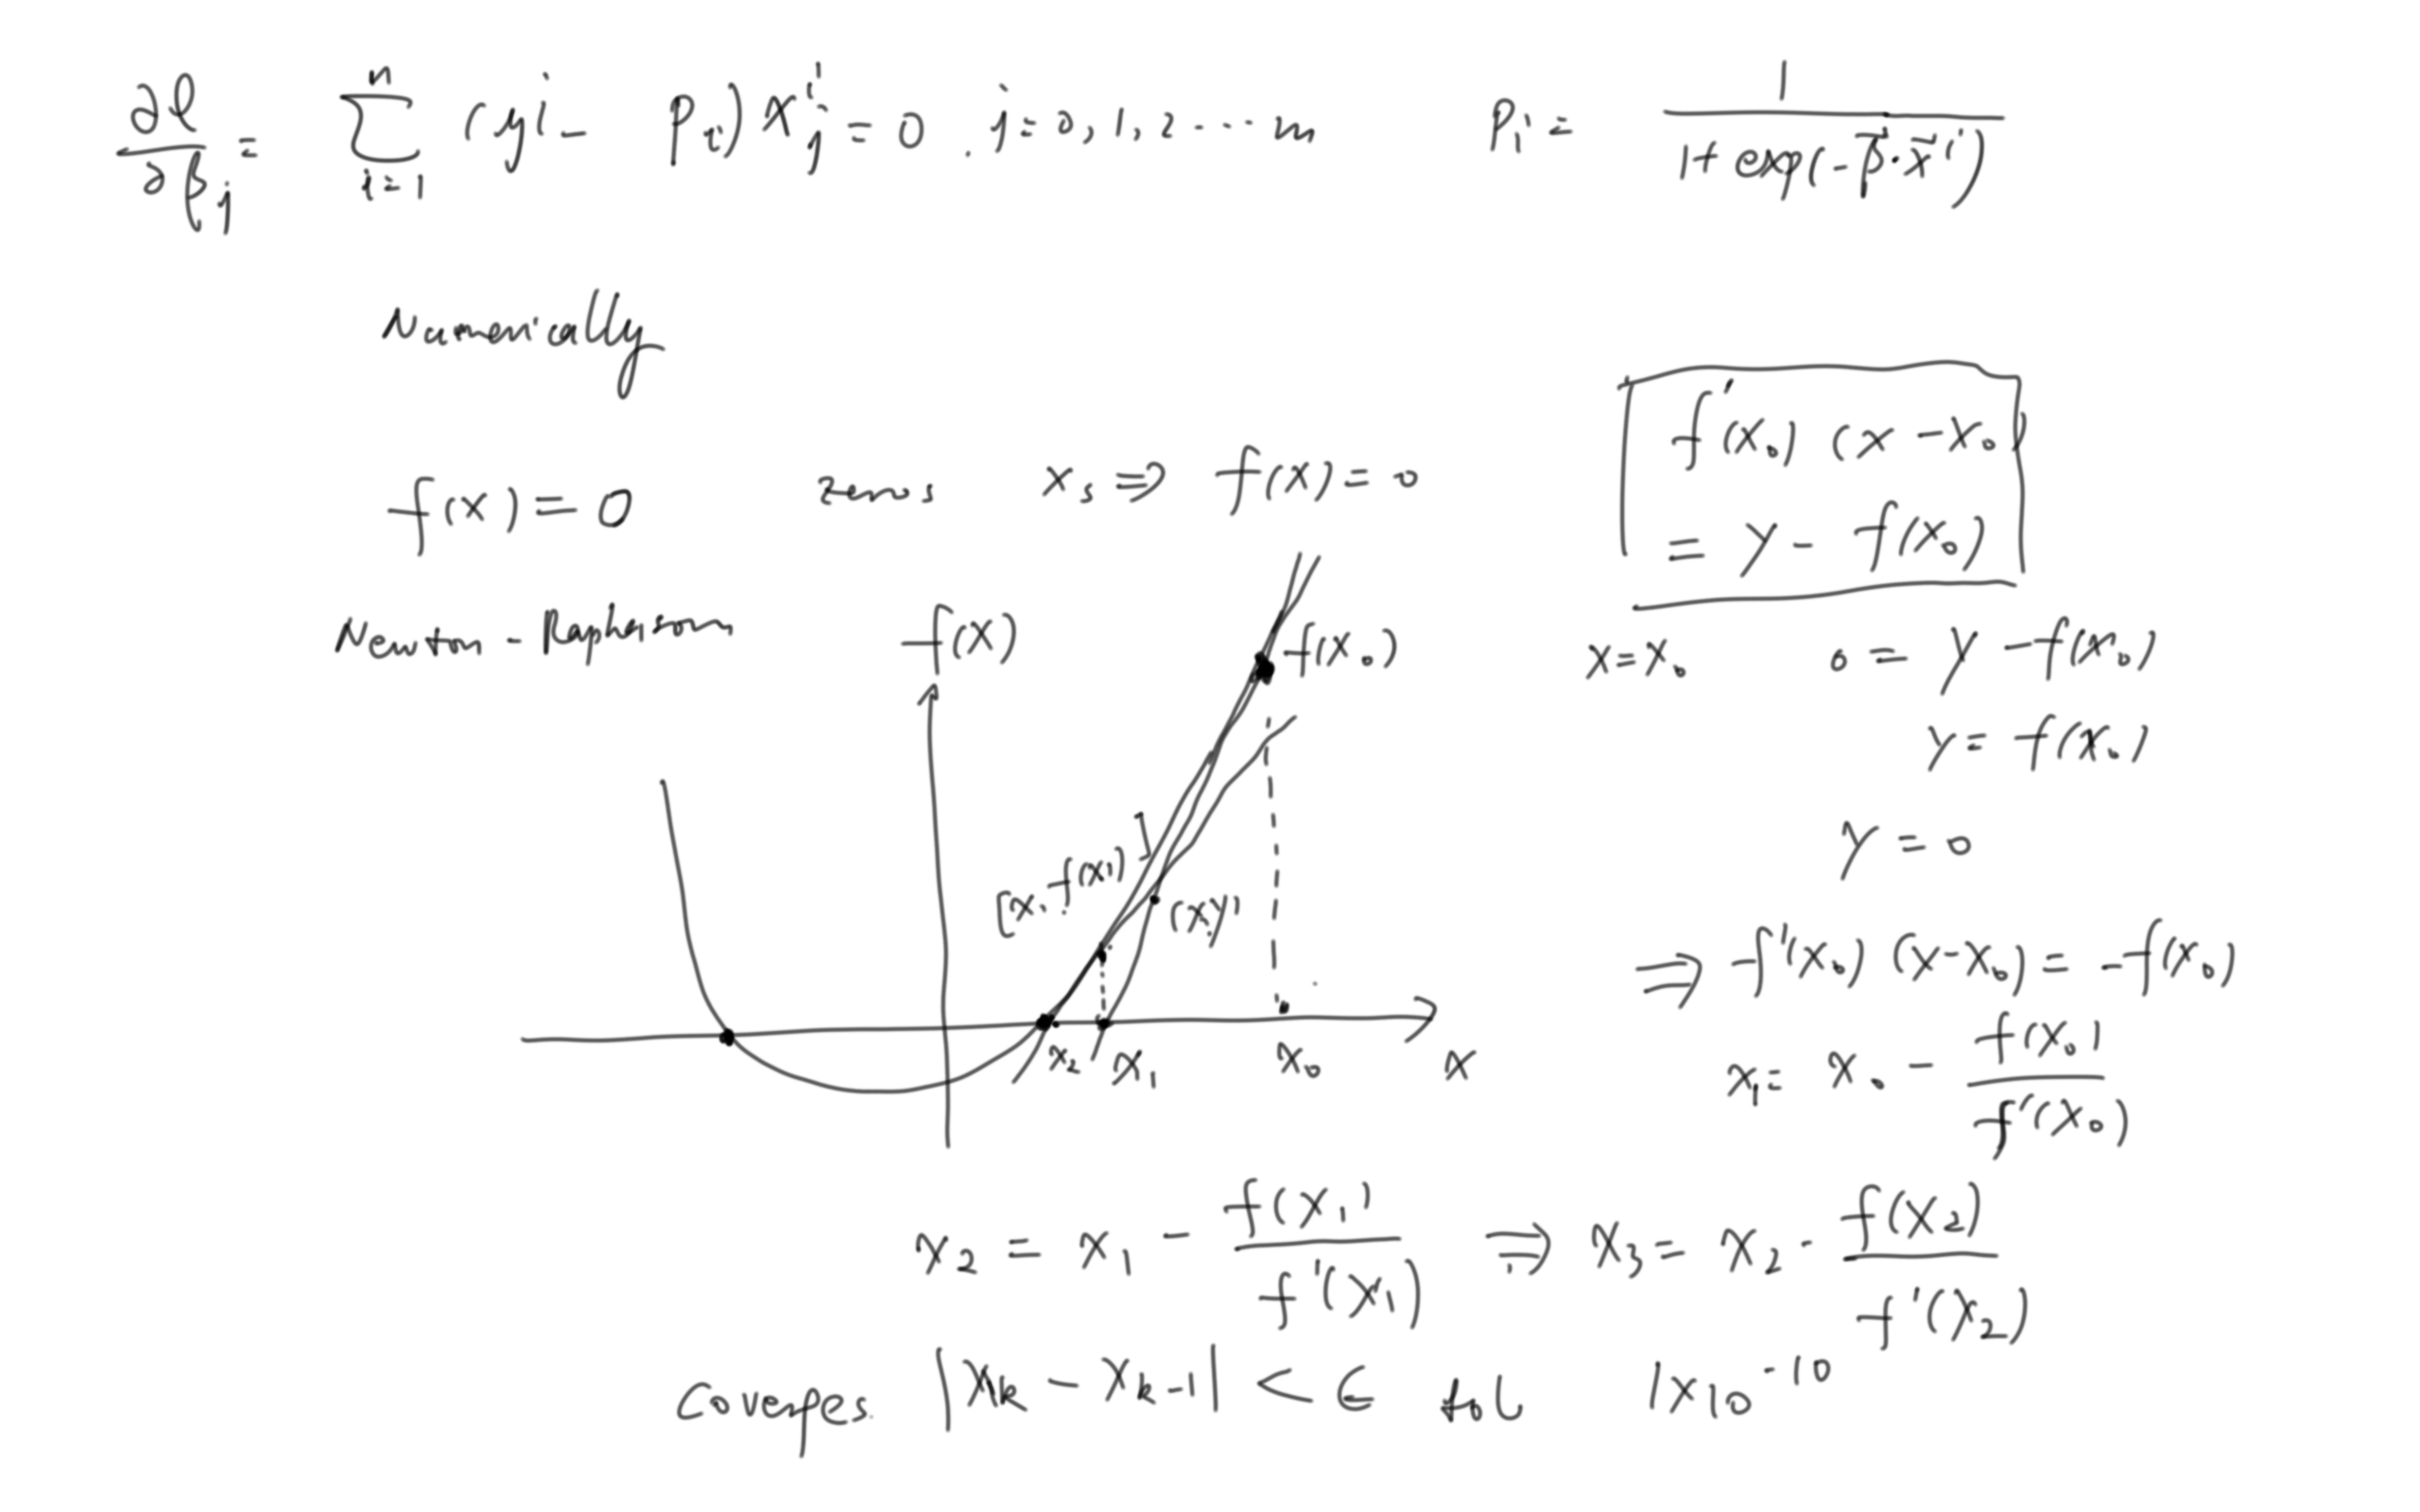 ∂ℓ/∂βj = Σ_{i=1}^{n} (y^i - p_i) x_j^i = 0 . j=0,1,2---- m   p_i = 1/(1+exp(-β⃗·x⃗^i))
Numerically
f(x)=0   zeros   x_s ⇒ f(x)=0
f'(x_0) (x-x_0)
= y - f(x_0)
Newton - Raphson
f(x)
f(x_0)
x=x_0   0 = y - f(x_0)
y = f(x_0)
y = 0
[x_1, f(x_1)]
(x,y)
⇒ f'(x_0) (x-x_0) = -f(x_0)
x_2   x_1   x_0   x
x_1 = x_0 - f(x_0)/f'(x_0)
x_2 = x_1 - f(x_1)/f'(x_1)   ⇒   x_3 = x_2 - f(x_2)/f'(x_2)
Coverges. |x_k - x_{k-1}| < ϵ   tol   1x10^{-10}